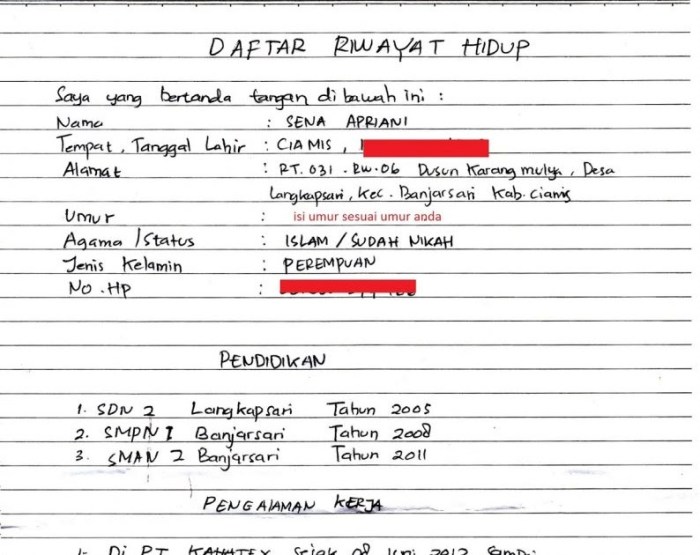 DAFTAR RIWAYAT HIDUP
Saya yang bertanda tangan di bawah ini :
Nama : SENA APRIANI
Tempat, Tanggal Lahir : CIAMIS ,
Alamat : RT.031 . RW.06 Dusun Karang mulya, Desa
Langkapsari, Kec. Banjarsari Kab. Ciamis
Umur : isi umur sesuai umur anda
Agama /Status : ISLAM / SUDAH NIKAH
Jenis Kelamin : PEREMPUAN
No .HP :
PENDIDIKAN
1. SDN 2 Langkapsari Tahun 2005
2. SMPN 1 Banjarsari Tahun 2008
3. SMAN 2 Banjarsari Tahun 2011
PENGALAMAN KERJA
1. Di PT. KAHATEX sejak 08 Juni 2012